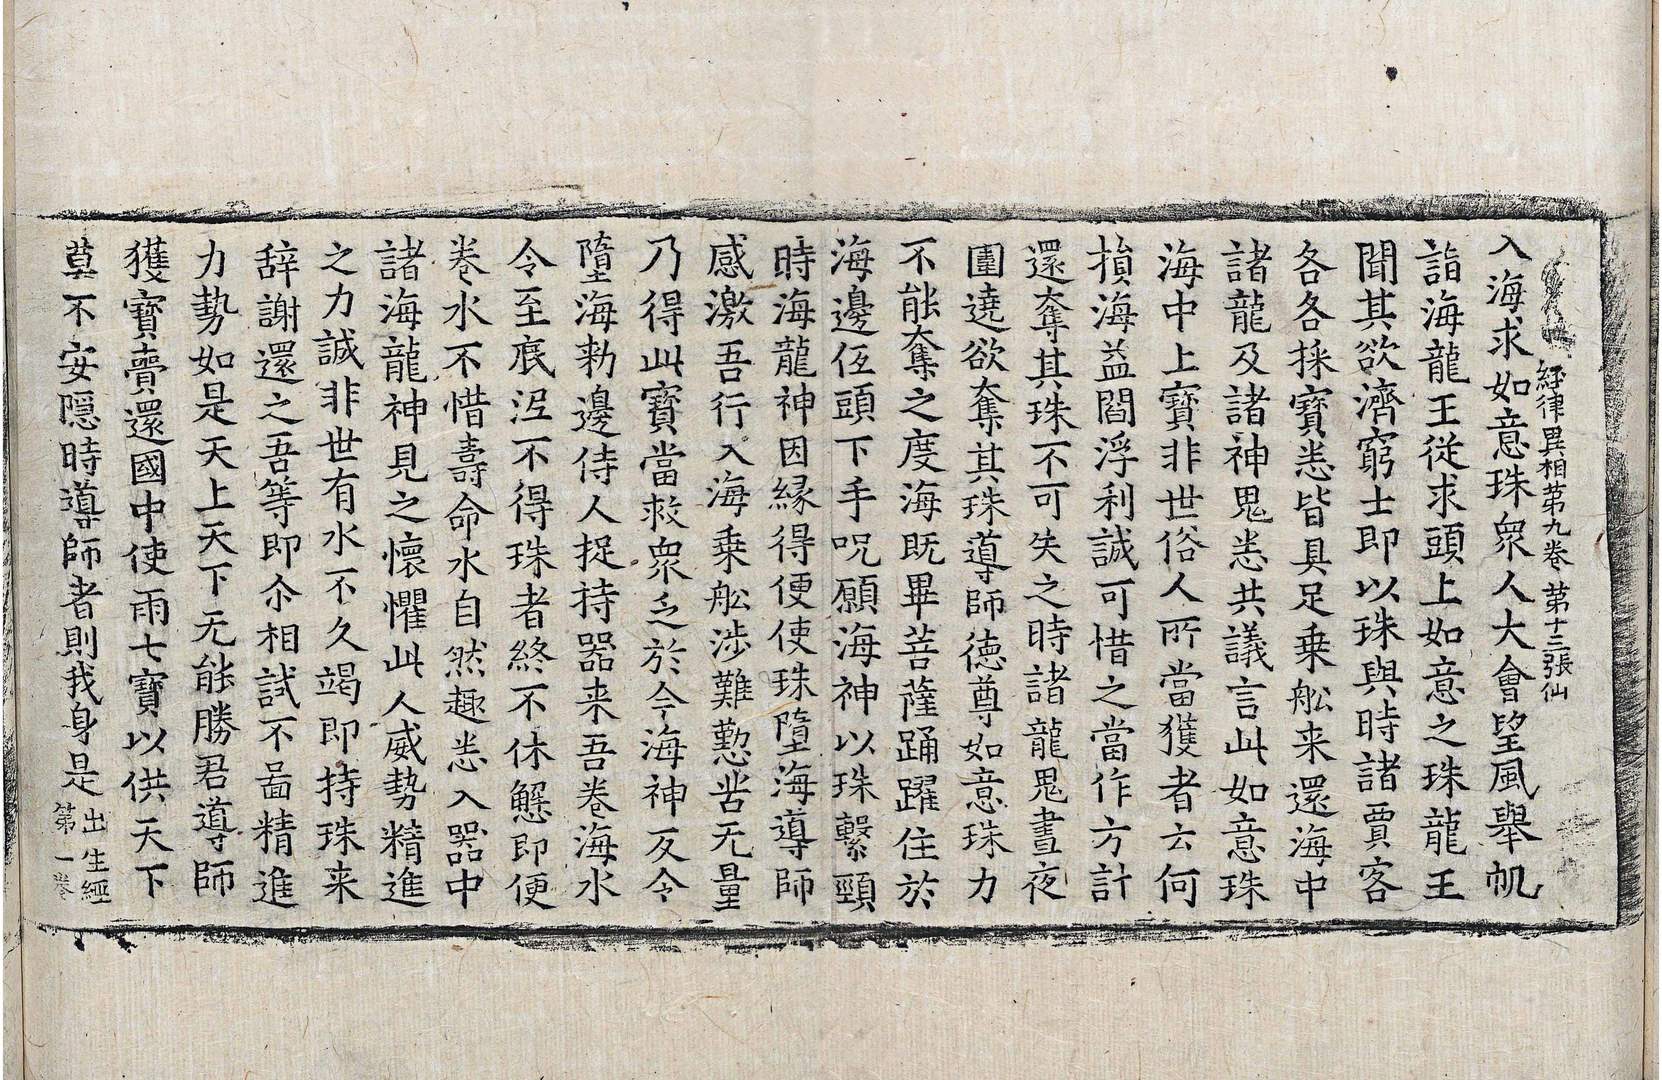 經律異相第九卷 第十三張仙
入海求如意珠衆人大會望風舉帆
詣海龍王從求頭上如意之珠龍王
聞其欲濟窮士即以珠與時諸賈客
各各採寶悉皆具足乗舩来還海中
諸龍及諸神鬼悉共議言此如意珠
海中上寶非世俗人所當獲者云何
損海益閻浮利誠可惜之當作方計
還奪其珠不可失之時諸龍鬼晝夜
圍遶欲奪其珠導師德尊如意珠力
不能奪之度海既畢菩薩踊躍住於
海邊伍頭下手呪願海神以珠繫頸
時海龍神因緣得便使珠墮海導師
感激吾行入海乗舩涉難懃苦无量
乃得此寶當救衆乏於今海神反令
墮海勑邊侍人捉持器来吾卷海水
令至底泥不得珠者終不休懈即便
卷水不惜壽命水自然趣悉入器中
諸海龍神見之懷懼此人威勢精進
之力誠非世有水不久竭即持珠来
辞謝還之吾等即尒相試不啚精進
力勢如是天上天下无能勝君導師
獲寶賷還國中使雨七寶以供天下
莫不安隱時導師者則我身是
出生經
第一卷